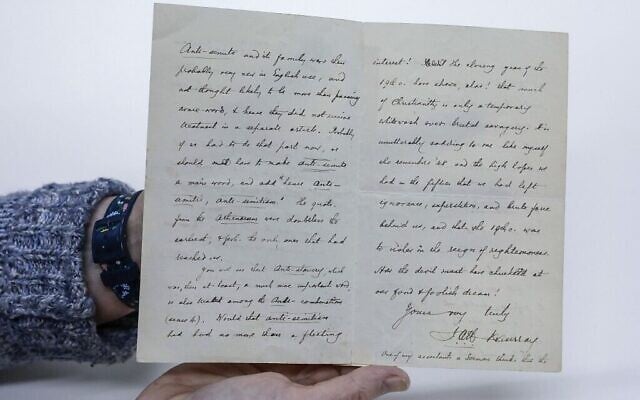 Anti-semite and its family were then
probably very new in English use, and
not thought likely to be more than passing
nonce-words, & hence they did not receive
treatment in a separate article. Probably
if we had to do that part now, we
should have to make Anti-semite
a main word, and add "hence Anti-
semitic, Anti-semitism." The quots.
from the Athenæum were doubtless the
earliest, & the only ones that had
reached us.
You will see that Anti-slavery which
was, then at least, a much more important word,
is also treated among the Anti- combinations
Would that anti-semitism
had had no more than a fleeting
interest! The closing years of the
19th c. have shown, alas! that much
of Christianity is only a temporary
whitewash over brutal savagery. It is
unutterably saddening to one like myself
who remembers '48 and the high hopes we
had in the fifties that we had left
ignorance, superstition, and brute force
behind us, and that the 19th c. was
to usher in the reign of righteousness.
How the devil must have chuckled at
our fond & foolish dreams!
Yours very truly
J.A.H. Murray
One of my assistants a German thinks that the